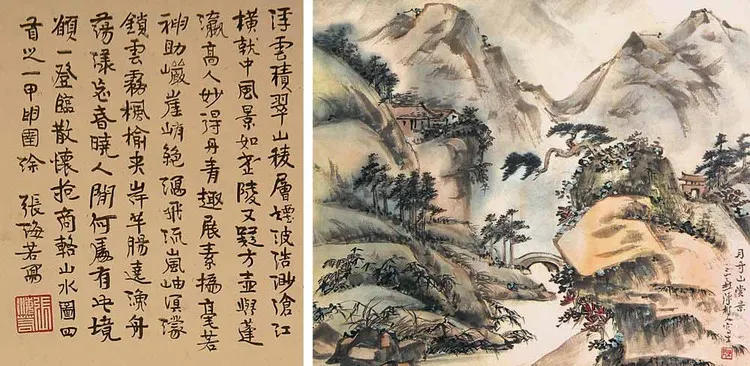 浮雲積翠山稜層煙波浩渺滄江
橫就中風景如金陵又疑方壺與蓬
瀛高人妙得丹青趣展素揮毫若
神助巉崖峭絕瀉飛流嵐岫溟濛
鎖雲霧楓榆夾岸羊腸達漁舟
蕩漾忘春曉人間何處有此境
願一登臨散懷抱商輅山水圖四
首之一 張海若